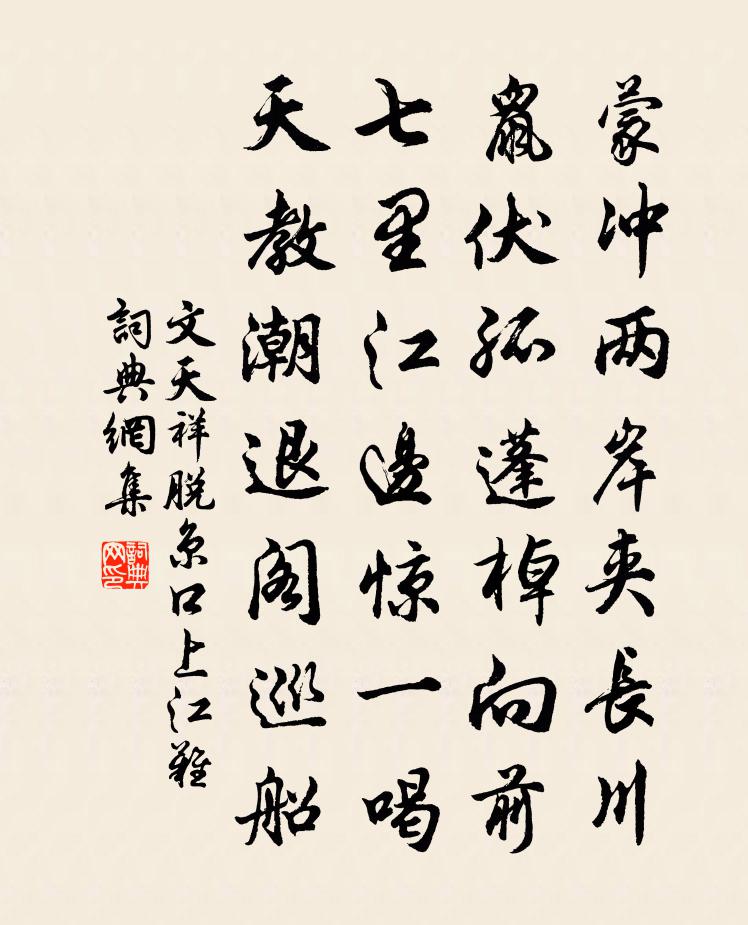 蒙冲两岸夹長川
鼠伏孤蓬棹向前
七里江邊惊一喝
天教潮退阁巡船
文天祥脱京口上江難
詞典網集
詞典网印